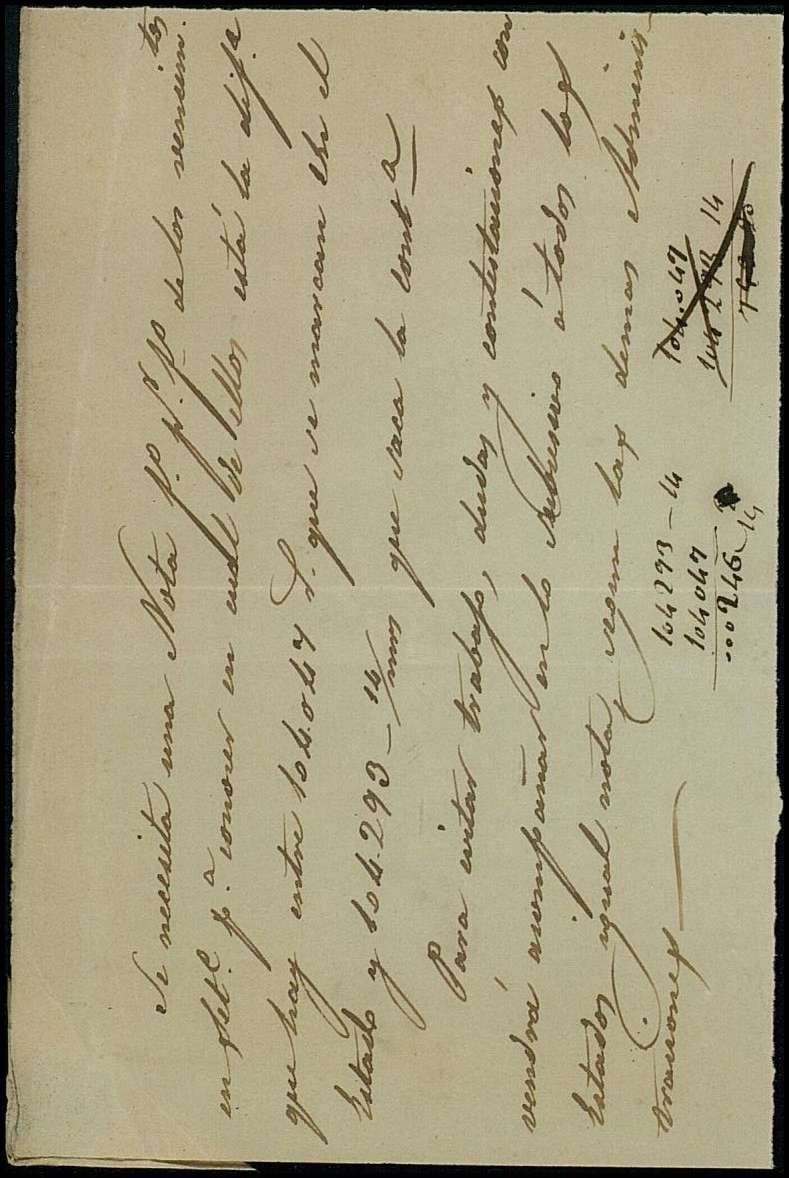 Se necesita una Nota p.º p.r p.º de los vencim.tos
en set.e p.ª conocer en cual de ellos está la dif.ª
que hay entre 104.047 r. que se marcan en el
Estado y 104.293 – 14/mrs que saca la cont.ª
Para evitar trabajo, dudas y contestaciones con
vendrá acompañar en lo subcesivo á todos los
Estados igual nota, segun las demas Adminis-
traciones
104293 – 14
104047
...246 – 14
104.047
104293 14